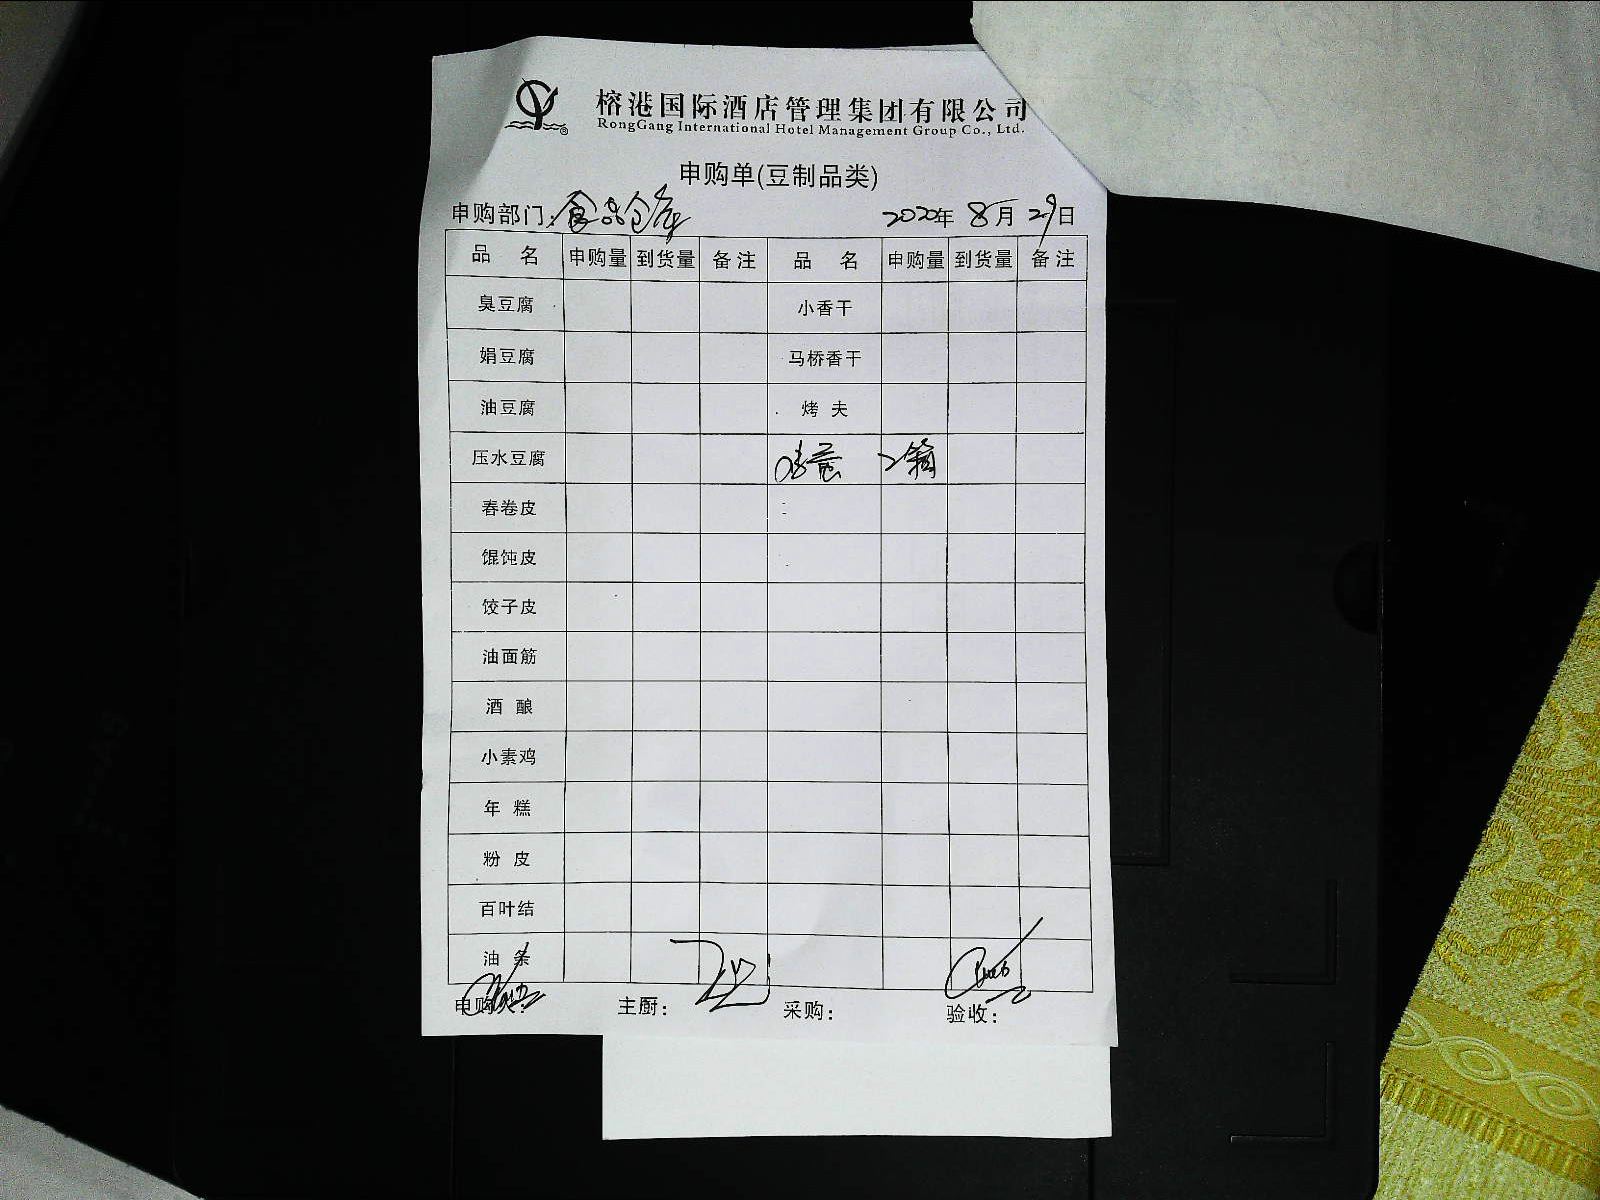 榕港国际酒店管理集团有限公司
RongGang International Hotel Management Group Co., Ltd.
申购单(豆制品类)
申购部门:食品仓库 2020年 8月 29日
品 名 申购量 到货量 备注 品 名 申购量 到货量 备注
臭豆腐 小香干
娟豆腐 马桥香干
油豆腐 烤 夫
压水豆腐 2箱
春卷皮
馄饨皮
饺子皮
油面筋
酒 酿
小素鸡
年 糕
粉 皮
百叶结
油 条
申购人: 主厨: 采购: 验收: